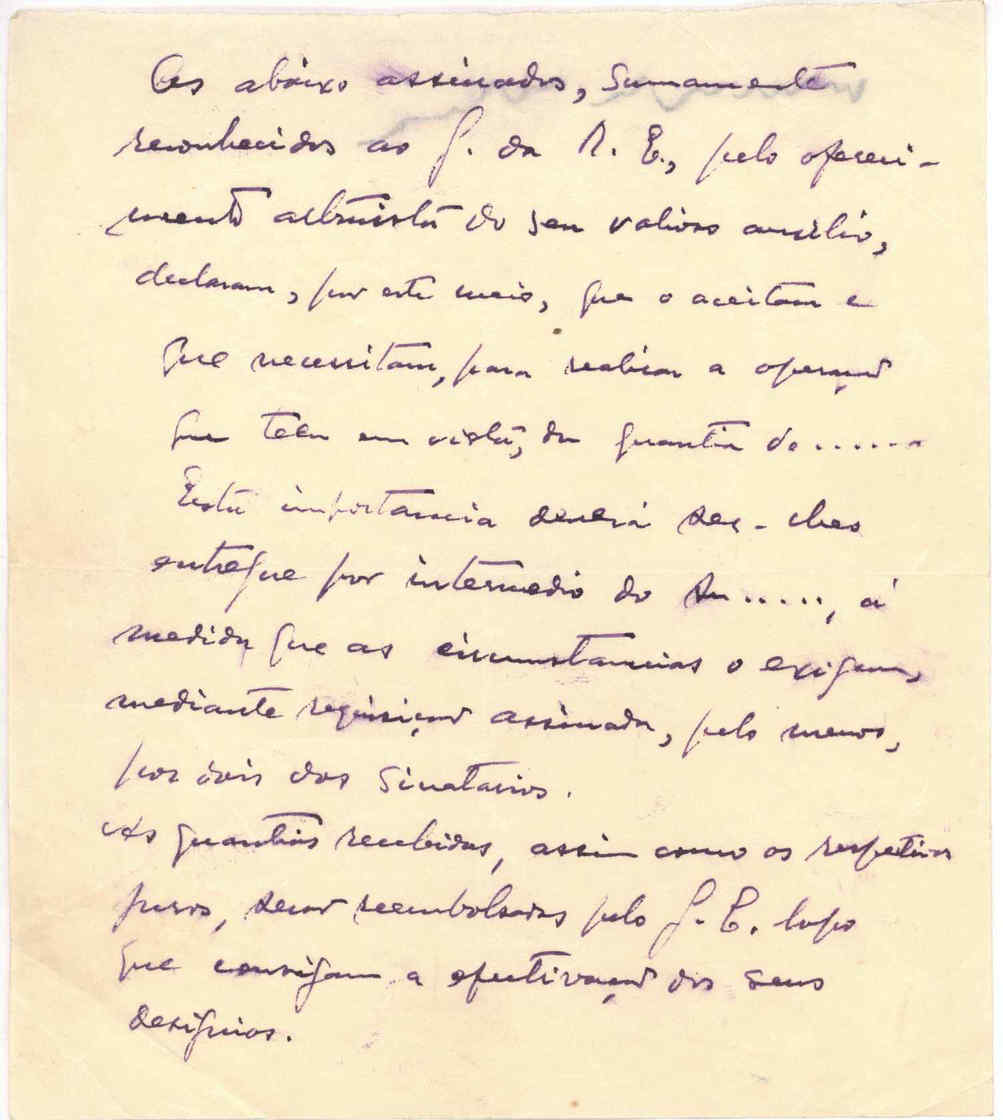 Os abáixo assinados, sumamente
reconhecidos ao G. da R. E., pelo ofereci-
mento altruista do seu valioso auxilio,
declaram, por este meio, que o aceitam e
que necessitam, para realisar a operação
que teem em vista, da quantia de......
Esta importancia deverá ser-lhes
entregue por intermedio do Sr....., á
medida que as circumstancias o exigem,
mediante requisição assinada, pelo menos,
por dois dos sinatarios.
As quantias recebidas, assim como os respetivos
juros, serão reembolsadas pelo G. E. logo
que consigam a efectivação dos seus
designios.